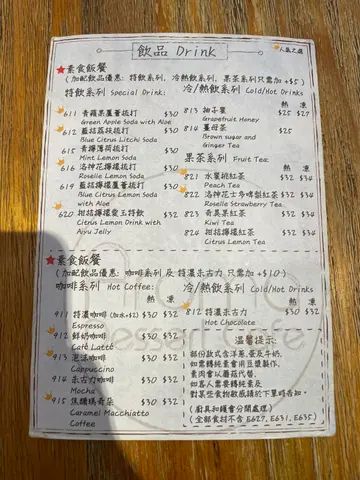 飲品 Drink
人氣之選
★素食飯餐
(加配飲品優惠: 特飲系列, 冷熱飲系列, 果茶系列只需加+$5)
特飲系列 Special Drink:
611 青蘋果蘆薈梳打 $30
Green Apple Soda with Aloe
612 藍桔荔枝梳打 $30
Blue Citrus Litchi Soda
615 青檸薄荷梳打 $30
Mint Lemon Soda
616 洛神花檸檬梳打 $30
Roselle Lemon Soda
619 藍桔檸檬蘆薈梳打 $30
Blue Citrus Lemon Soda
with Aloe
620 柑桔檸檬愛玉特飲 $32
Citrus Lemon Drink with
Aiyu Jelly
冷/熱飲系列 Cold/Hot Drinks
熱 凍
813 柚子蜜 $25 $27
Grapefruit Honey
814 薑母茶 $25
Brown sugar and
Ginger Tea
果茶系列 Fruit Tea:
熱 凍
821 水蜜桃紅茶 $32 $34
Peach Tea
822 洛神花士多啤梨紅茶 $32 $34
Roselle Strawberry Tea
823 奇異果紅茶 $32 $34
Kiwi Tea
824 柑桔檸檬紅茶 $32 $34
Citrus Lemon Tea
★素食飯餐
(加配飲品優惠: 咖啡系列 及 特濃朱古力 只需加 +$10)
咖啡系列 Hot Coffee:
熱 凍
911 特濃咖啡 $30 $32
Espresso
912 鮮奶咖啡 $30 $32
Café Latte
913 泡沫咖啡 $30 $32
Cappuccino
914 朱古力咖啡 $30 $32
Mocha
915 焦糖瑪奇朵 $30 $32
Caramel Macchiatto
Coffee
冷/熱飲系列 Cold/Hot Drinks
熱 凍
812 特濃朱古力 $30 $32
Hot Chocolate
溫馨提示:
部份款式含洋葱,蛋及牛奶,
如需轉純素會用豆漿製作,
素肉會以蘑菇代替,
如客人需要轉純素及
對某些食物敏感請於下單時告知。
(廚具和鑊會分開處理)
(全部食材不含 E627, E631, E635)